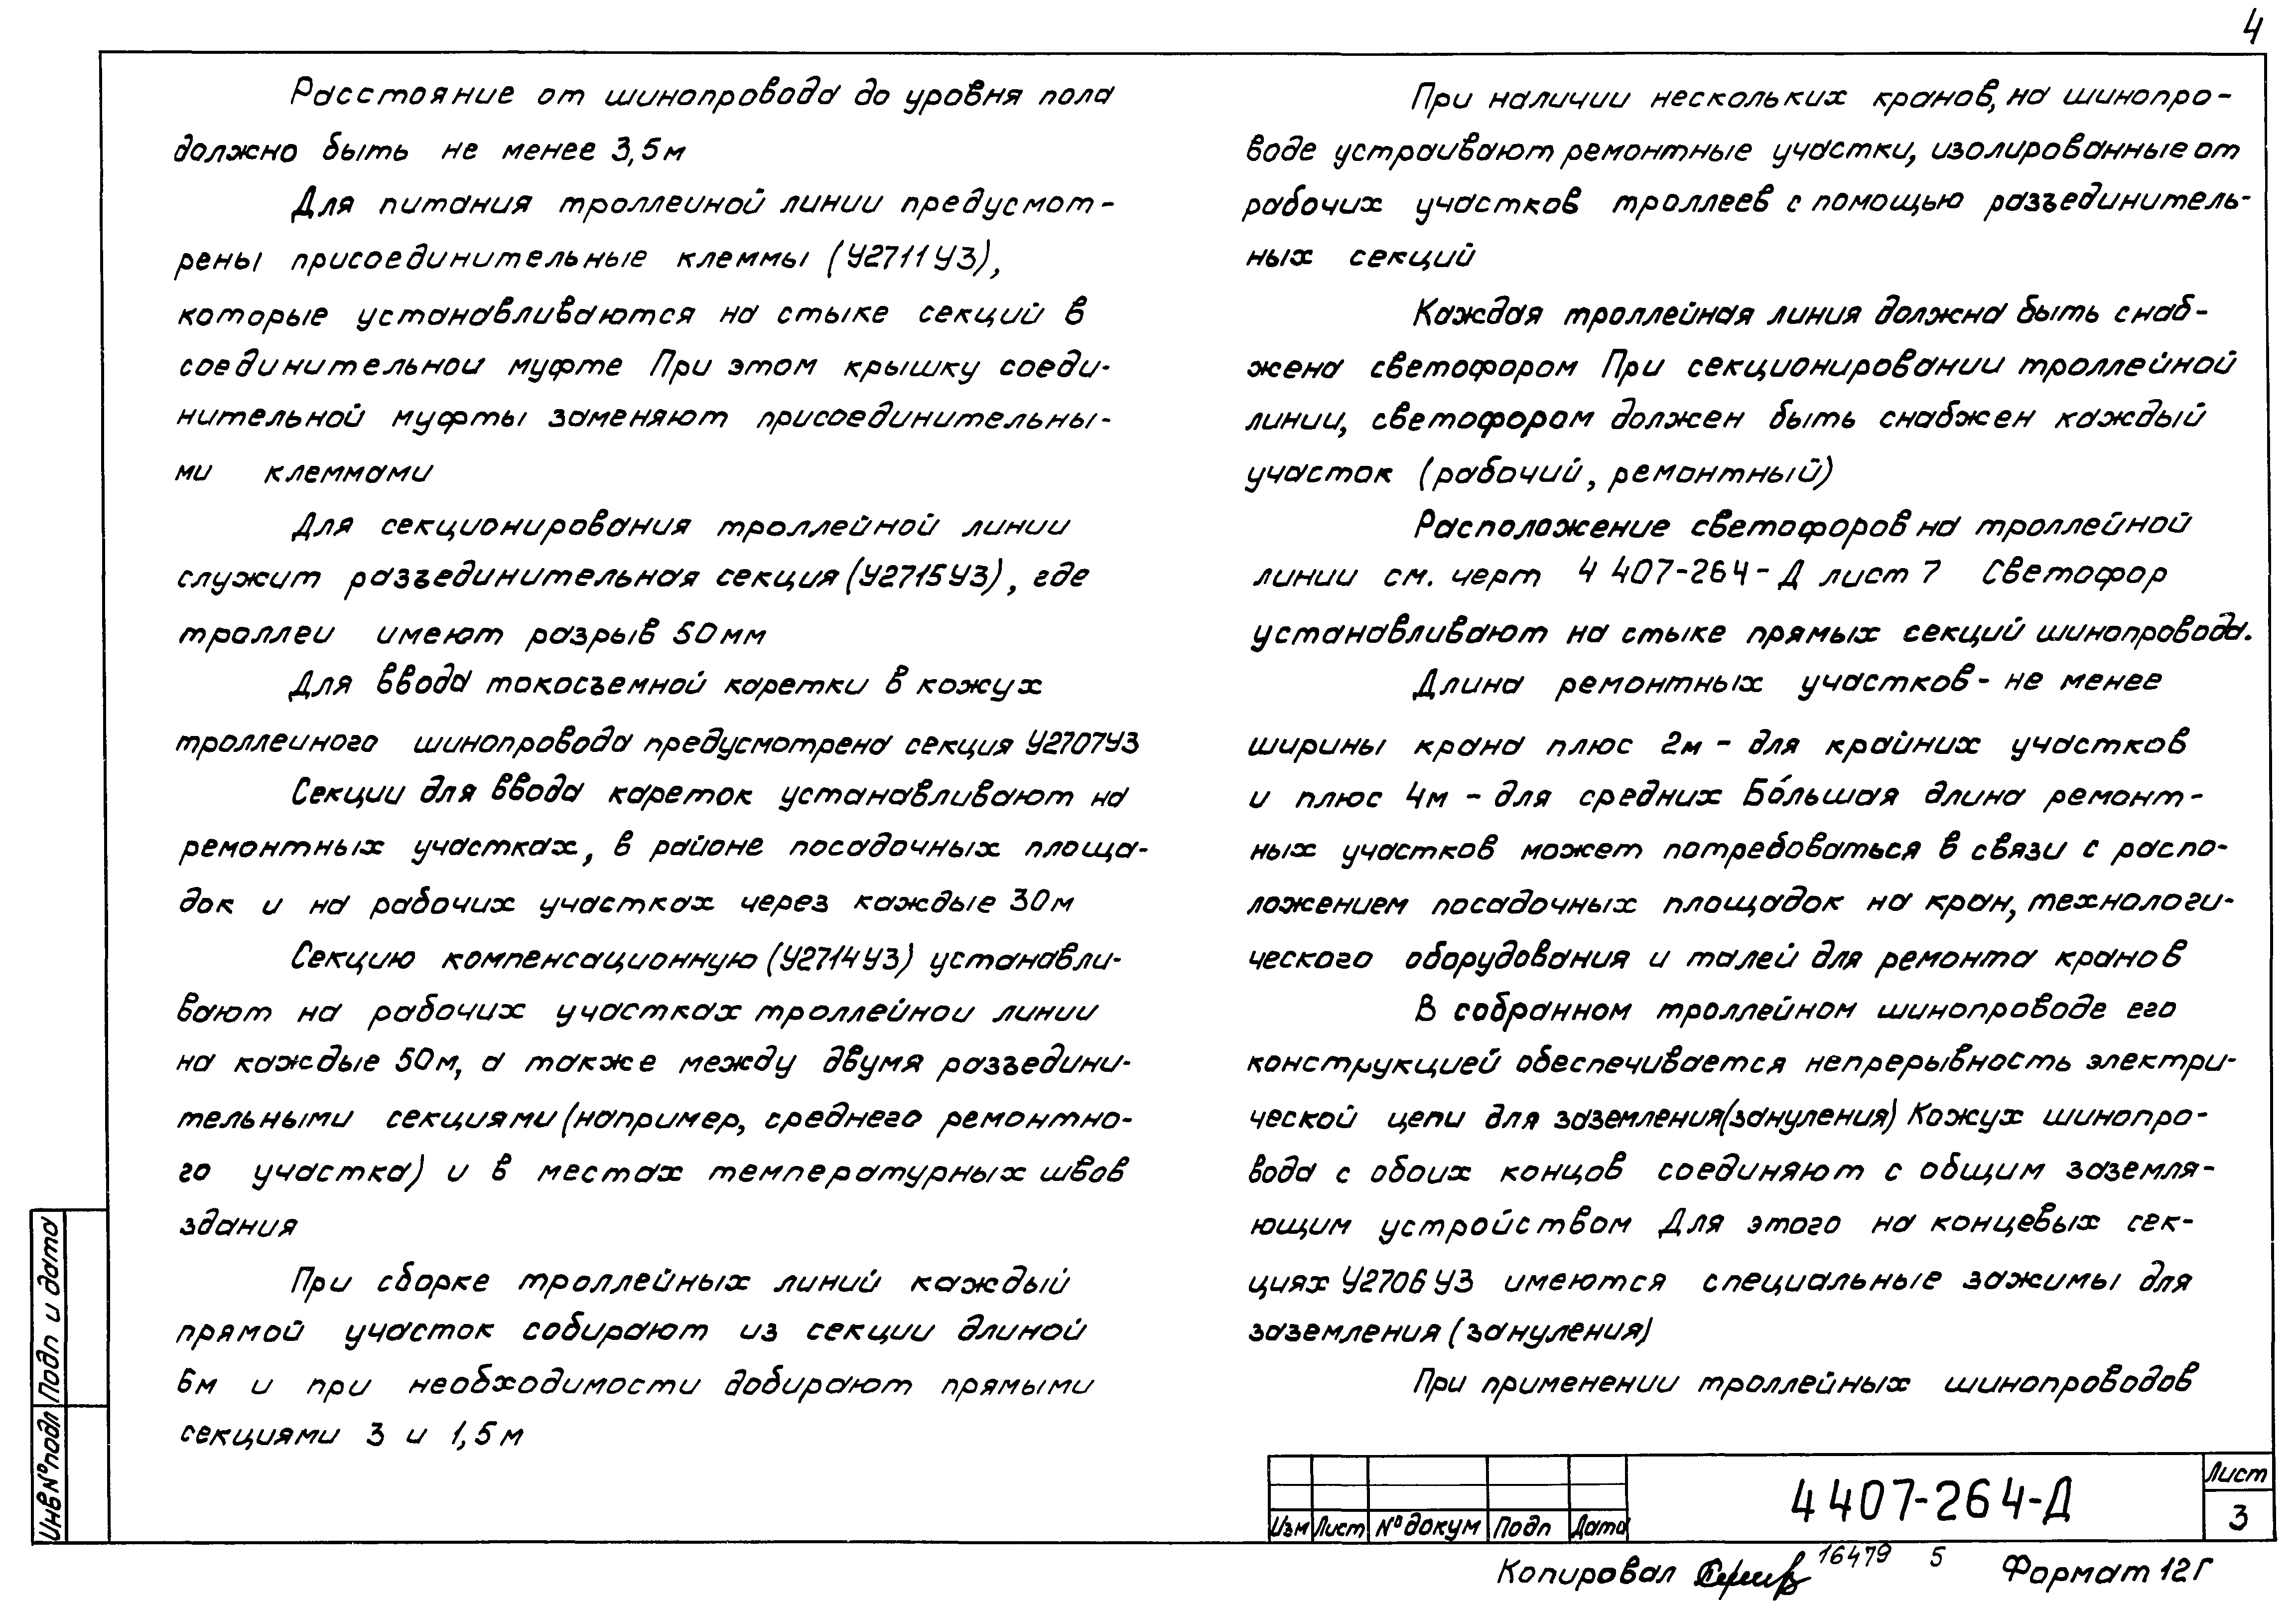 4
Расстояние от шинопровода до уровня пола
должно быть не менее 3,5м
Для питания троллеиной линии предусмот-
рены присоединительные клеммы (У2711У3),
которые устанавливаются на стыке секций в
соединительнои муфте При этом крышку соеди-
нительной муфты заменяют присоединительны-
ми клеммами
Для секционирования троллейной линии
служит разъединительная секция (У2715У3), где
троллеи имеют разрыв 50мм
Для ввода токосъемной каретки в кожух
троллеиного шинопровода предусмотрена секция У2707У3
Секции для ввода кареток устанавливают на
ремонтных участках, в районе посадочных площа-
док и на рабочих участках через каждые 30м
Секцию компенсационную (У2714У3) устанавли-
вают на рабочих участках троллейнои линии
на каждые 50м, а также между двумя разъедини-
тельными секциями (например, среднего ремонтно-
го участка) и в местах температурных швов
здания
При сборке троллейных линий каждый
прямой участок собирают из секции длиной
6м и при необходимости добирают прямыми
секциями 3 и 1,5м
При наличии нескольких кранов, на шинопро-
воде устраивают ремонтные участки, изолированные от
рабочих участков троллеев с помощью разъединитель-
ных секций
Каждая троллейная линия должна быть снаб-
жена светофором При секционировании троллейной
линии, светофором должен быть снабжен каждый
участок (рабочий, ремонтный)
Расположение светофоров на троллейной
линии см. черт 4 407-264-Д лист 7 Светофор
устанавливают на стыке прямых секций шинопровода.
Длина ремонтных участков - не менее
ширины крана плюс 2м - для крайних участков
и плюс 4м - для средних Бо́льшая длина ремонт-
ных участков может потребоваться в связи с распо-
ложением посадочных площадок на кран, технологи-
ческого оборудования и талей для ремонта кранов
В собранном троллейном шинопроводе его
конструкцией обеспечивается непрерывность электри-
ческой цепи для заземления (зануления) Кожух шинопро-
вода с обоих концов соединяют с общим заземля-
ющим устройством Для этого на концевых сек-
циях У2706У3 имеются специальные зажимы для
заземления (зануления)
При применении троллейных шинопроводов
Инв № подл Подп и дата
Изм Лист № докум Подп Дата
4 407-264-Д
Лист
3
Копировал 16479 5 Формат 12Г